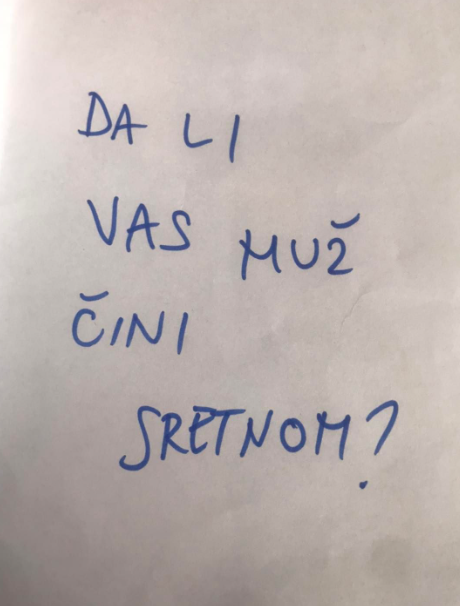 DA LI
VAS MUŽ
ČINI
SRETNOM?